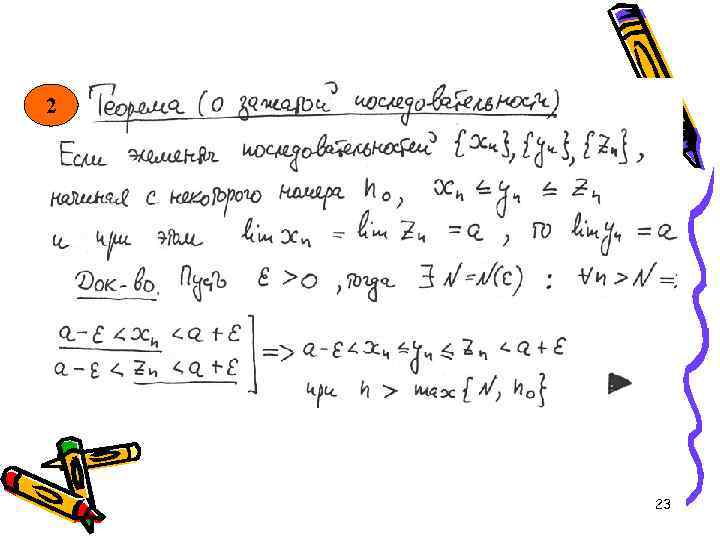 2 Теорема (о зажатой последовательности)
Если элементы последовательностей {xₙ}, {yₙ}, {zₙ},
начиная с некоторого номера n₀, xₙ ≤ yₙ ≤ zₙ
и при этом lim xₙ = lim zₙ = a, то lim yₙ = a
Док-во. Пусть ε > 0, тогда ∃ N = N(ε) : ∀n > N =
a - ε < xₙ < a + ε
a - ε < zₙ < a + ε
=> a - ε < xₙ ≤ yₙ ≤ zₙ < a + ε
при n > max{N, n₀}
23